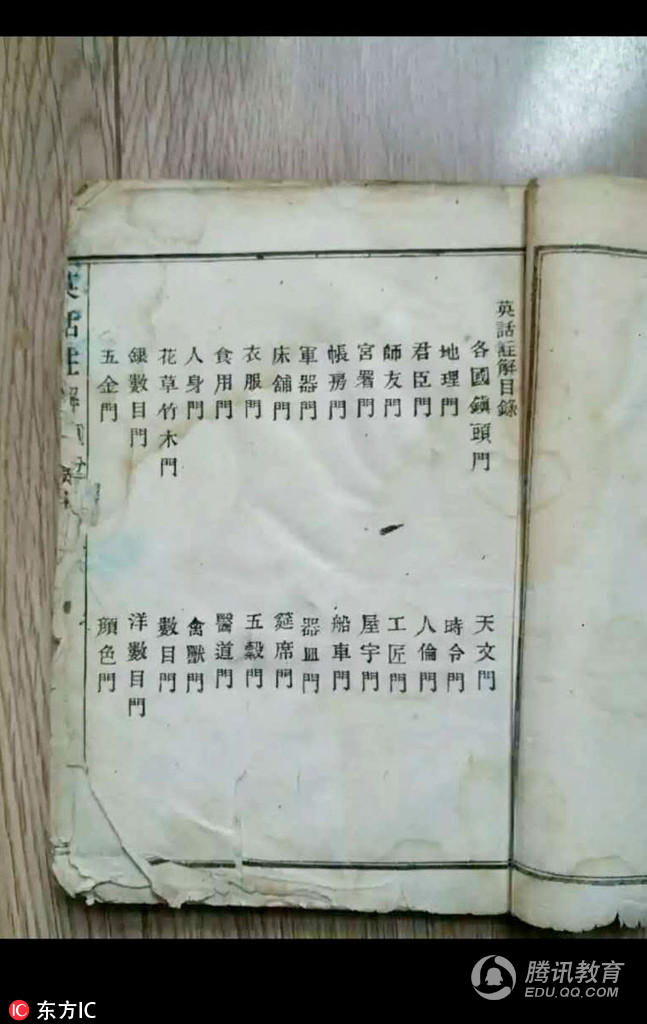 英話註解目錄
各國鎮頭門
天文門
地理門
時令門
君臣門
人倫門
師友門
工匠門
宮署門
屋宇門
帳房門
船車門
軍器門
器皿門
床舖門
筵席門
衣服門
五穀門
食用門
醫道門
人身門
禽獸門
花草竹木門
數目門
銀數目門
洋數目門
五金門
顏色門
英話註解
腾讯教育
EDU.QQ.COM
IC 东方IC